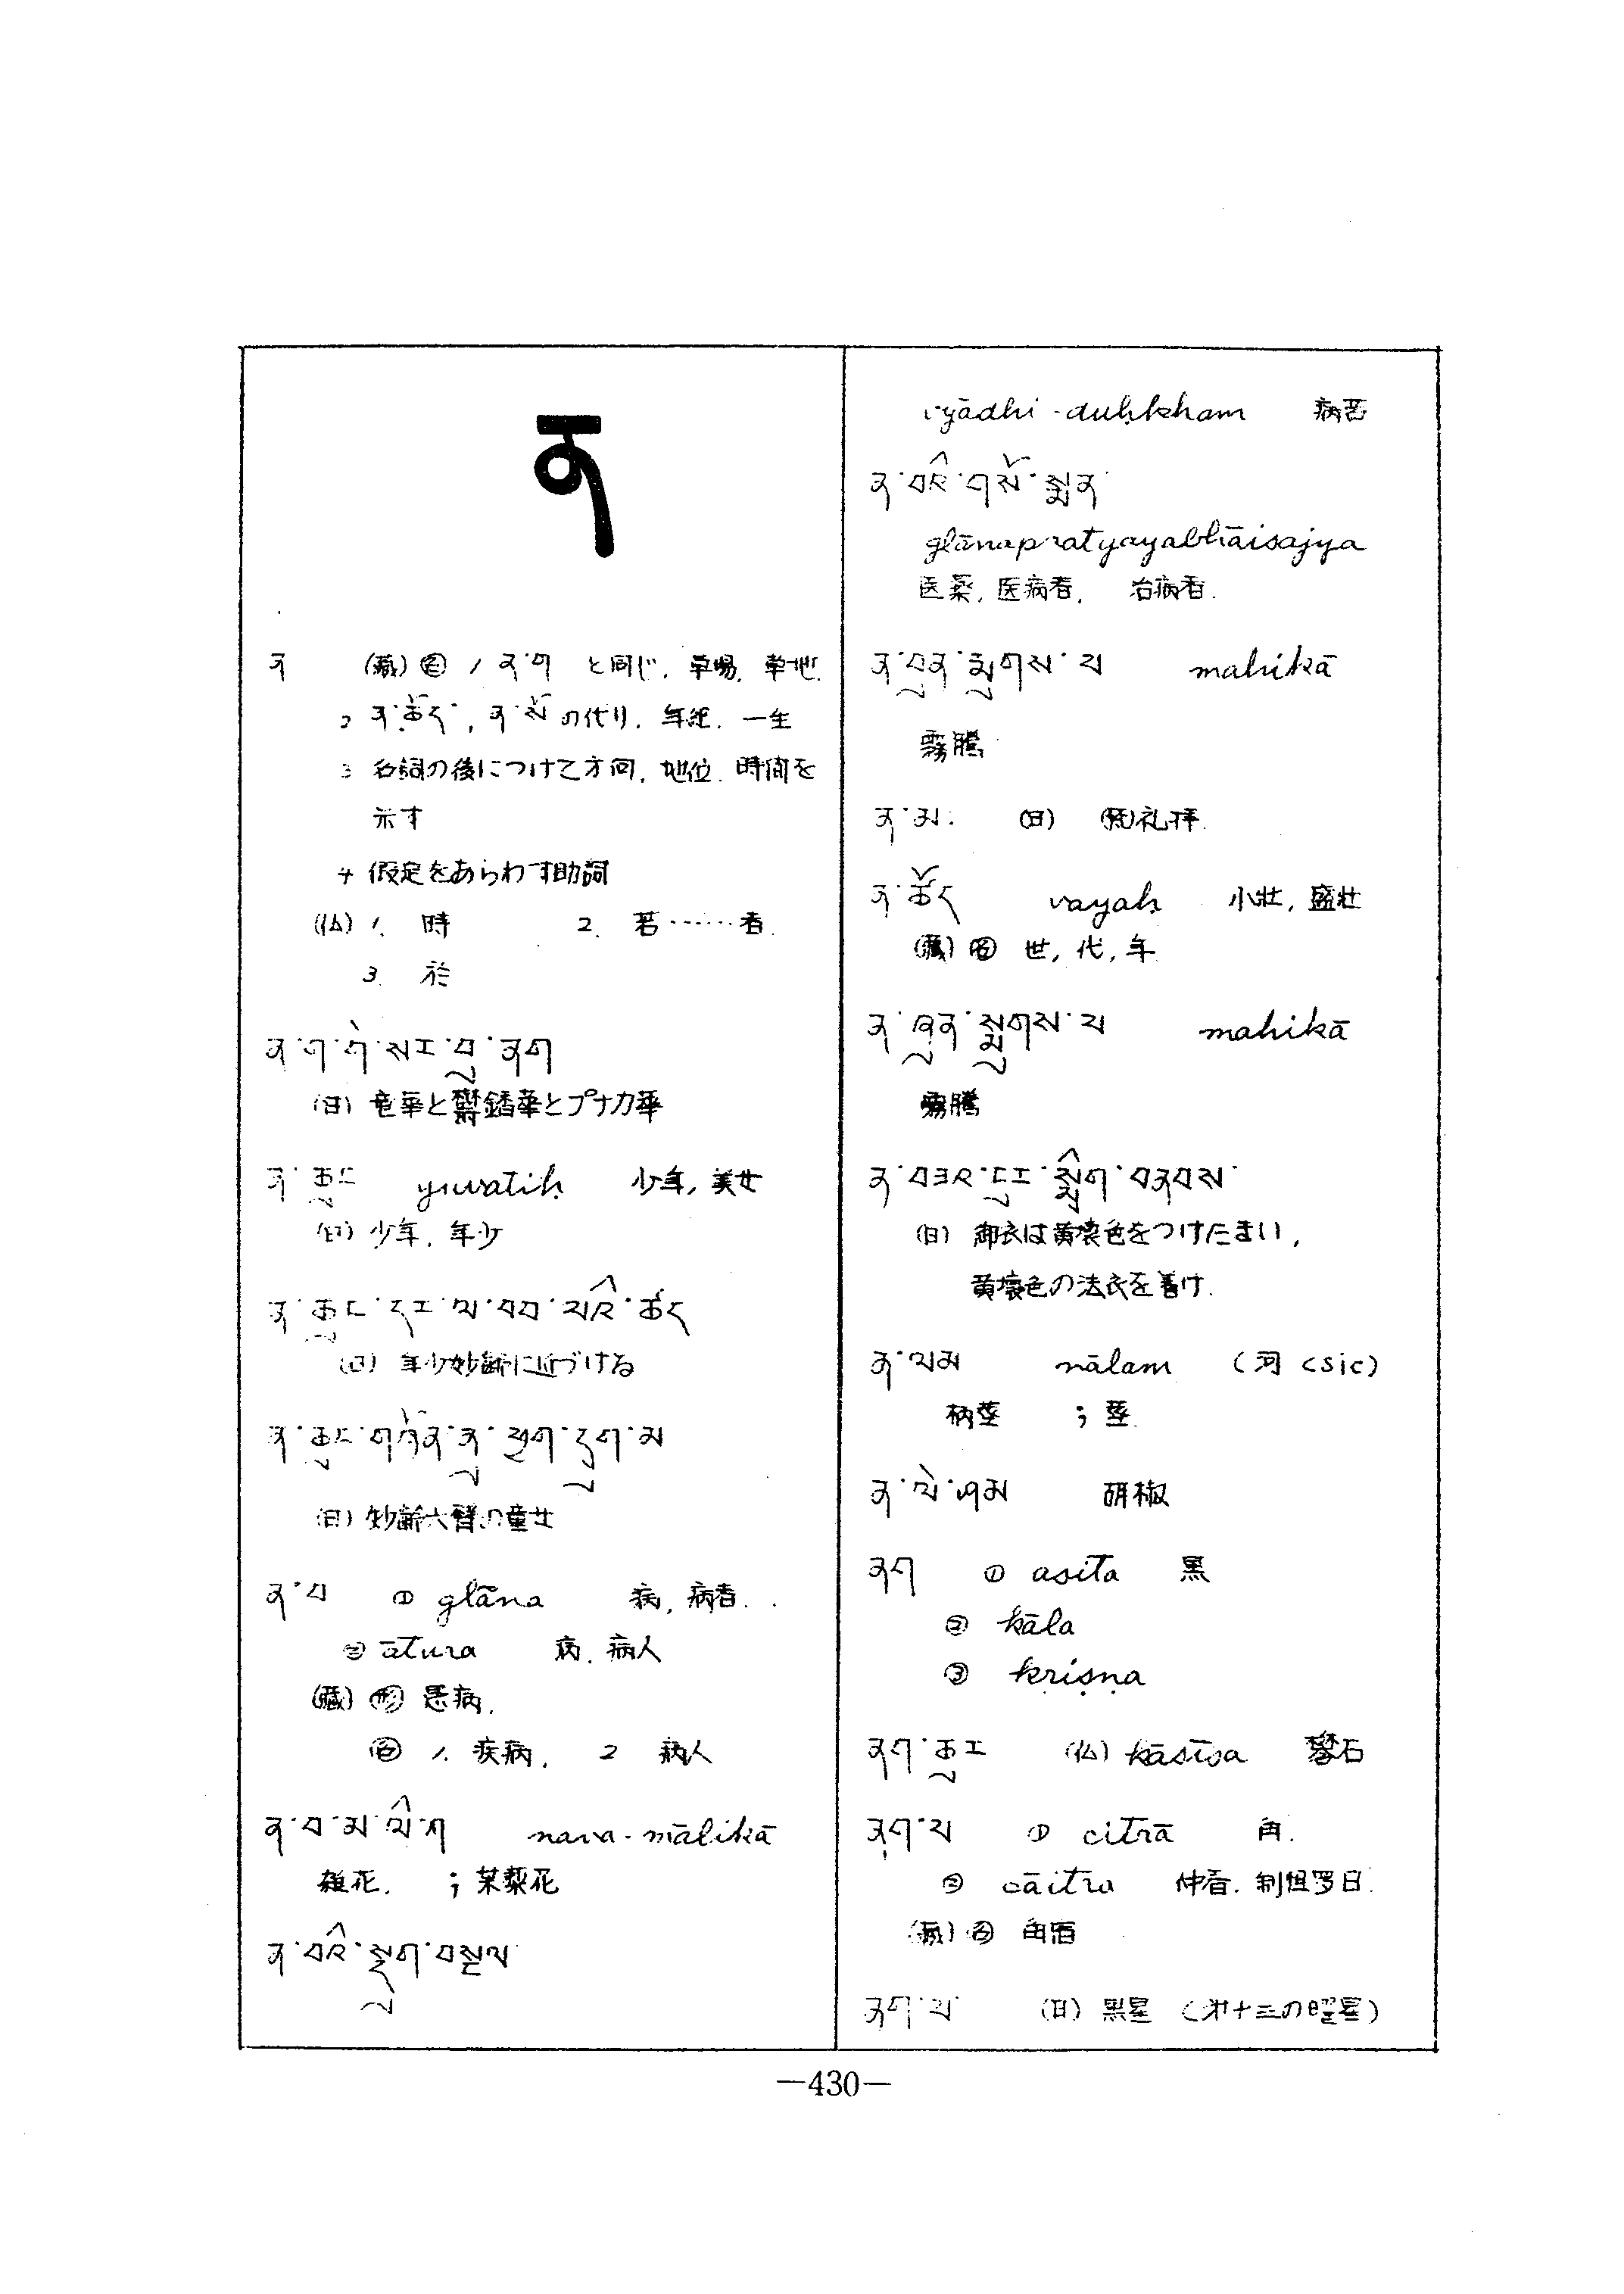 ན
ན (蔵) 名 1 ན་ཀ と同じ. 草場, 草地.
2 ན་ཚོད་, ན་སོ の代り. 年紀. 一生
3 名詞の後につけて方向, 地位. 時間を
示す
4 仮定をあらわす助詞
(仏) 1. 時 2. 若……者.
3. 於
ན་ག་གེ་སར་པུ་ནག
(日) 竜華と欝鐇華とプナカ華
ན་ཆུང yuvatiḥ 少年, 美女
(日) 少年, 年少
ན་ཆུང་དར་ལ་བབ་པའི་ཚོད
(日) 年少妙齢に近づける
ན་ཆུང་གཞོན་ནུ་ཕྱག་དྲུག་མ
(日) 妙齢六臂の童女
ན་བ ① glāna 病, 病者.
② ātura 病, 病人
(蔵) 形 患病.
名 1. 疾病. 2 病人
ན་བ་མ་ལི་ཀ nava-mālikā
雑花. ; 茉梨花
ན་བའི་སྡུག་བསྔལ
vyādhi-duḥkham 病苦
ན་བའི་གསོ་སྨན
glānapratyayabhāisajya
医薬, 医病者, 治病者.
ན་བུན་སྨུགས་པ mahikā
霧騰
ན་མ: (日) (梵)礼拝.
ན་ཚོད vayaḥ 小壮, 盛壮
(蔵) 名 世, 代, 年
ན་ཁུན་སྨུགས་པ mahikā
霧騰
ན་བཟའ་ངུར་སྨྲིག་བནབས་
(日) 御衣は黄壊色をつけたまい,
黄壊色の法衣を着け.
ན་ལམ nālam (河 <sic)
柄莖 ; 莖.
ན་ལེ་ཤམ 胡椒
ནག ① asita 黒
② kāla
③ kṛiṣṇa
ནག་ཆུར (仏) kāsīsa 礬石
ནག་པ ① citrā 角.
② cāitra 仲春. 制怛罗日.
(蔵) 名 角宿
ནག་པ (日) 黒星 (第十三の曜星)
—430—